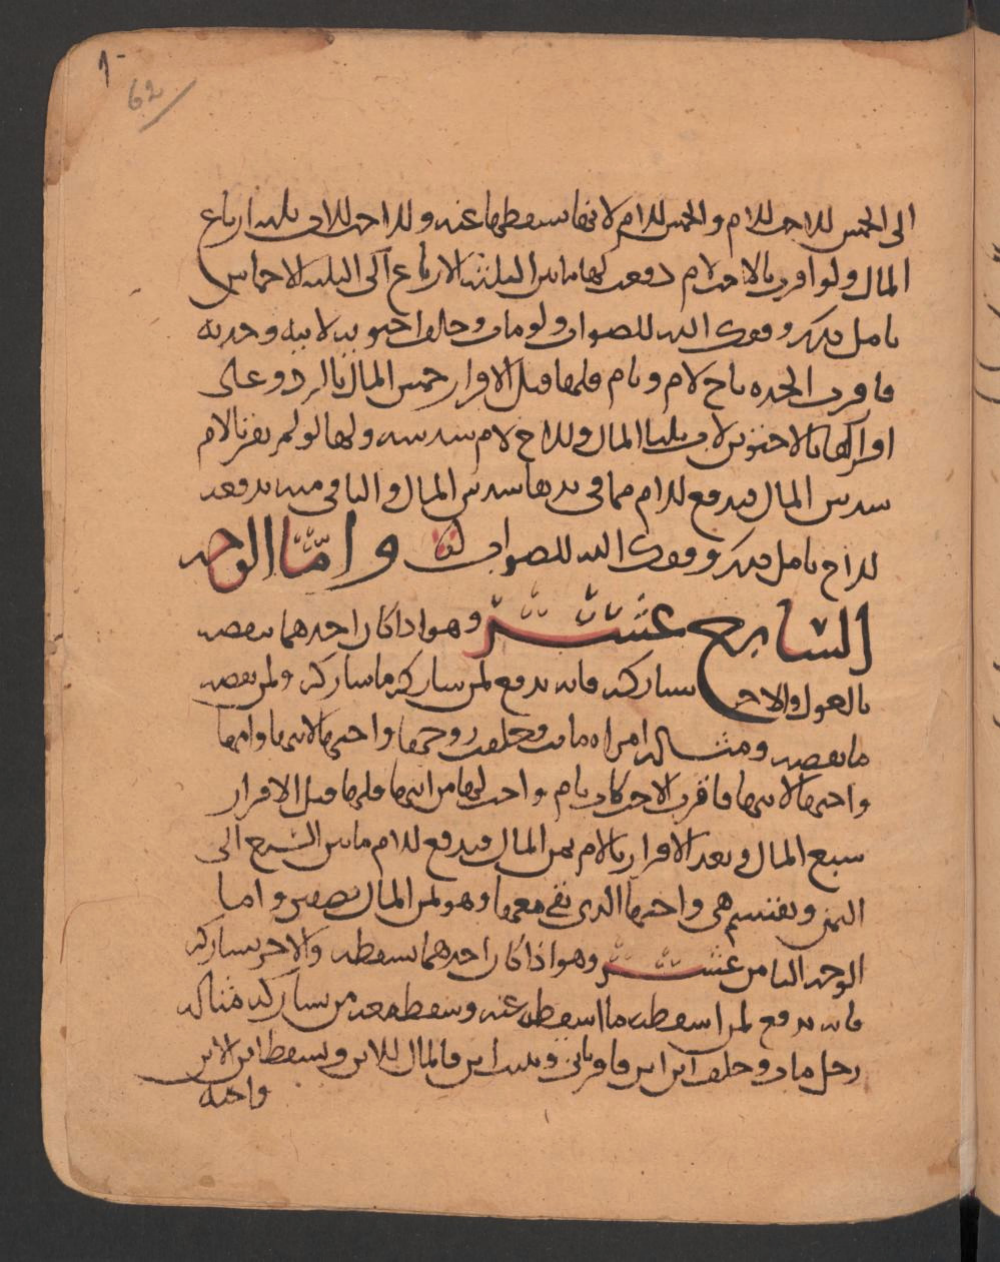 62
الى الخمس للاخت للام والخمس للام لانها سقطها عنه وللاخت للاب ثلثه ارباع
المال ولو اقرت بالاخت لام دفعت لها ما بين الثلثة الارباع الى الثلثة الاخماس
تامل ذلك وفقك الله للصواب ولو مات وخلف اختين لابيه وجدته
فاقرت الجده باخ لام وبام فلها قبل الاقرار خمس المال بالرد وعلى
اقرارها بالاختين لاب ثلثا المال وللاخ لام سدسه ولها لو لم تقر بالام
سدس المال فيدفع للام مما في يدها سدس المال والباقي منه تدفعه
للاخ تامل ذلك وفقك الله للصواب واما الوجه
السابع عشر وهو اذا كان احدهما ينقصه
بالعول والاخر يشاركه فانه يدفع لمن شاركه ما شاركه ولمن نقصه
ما نقصه ومثاله امراه ماتت وخلفت زوجها واختها لابيها وامها
واختها لابيها فاقرت الاخت لاب بام واخت لها من ابيها فلها قبل الاقرار
سبع المال وبعد الاقرار بالام ثمن المال فيدفع للام ما بين السبع الى
الثمن ويقتسم هي واختها الذي بقي معها وهو ثمن المال نصفين واما
الوجه الثامن عشر وهو اذا كان احدهما يسقطه والاخر يشاركه
فانه يدفع لمن اسقطه ما اسقطه عنه ويسقط معه من شاركه مثاله
رجل مات وخلف ابن ابن فاقر بابن وبنت ابن فالمال للابن ويسقط ابن الابن
واخته